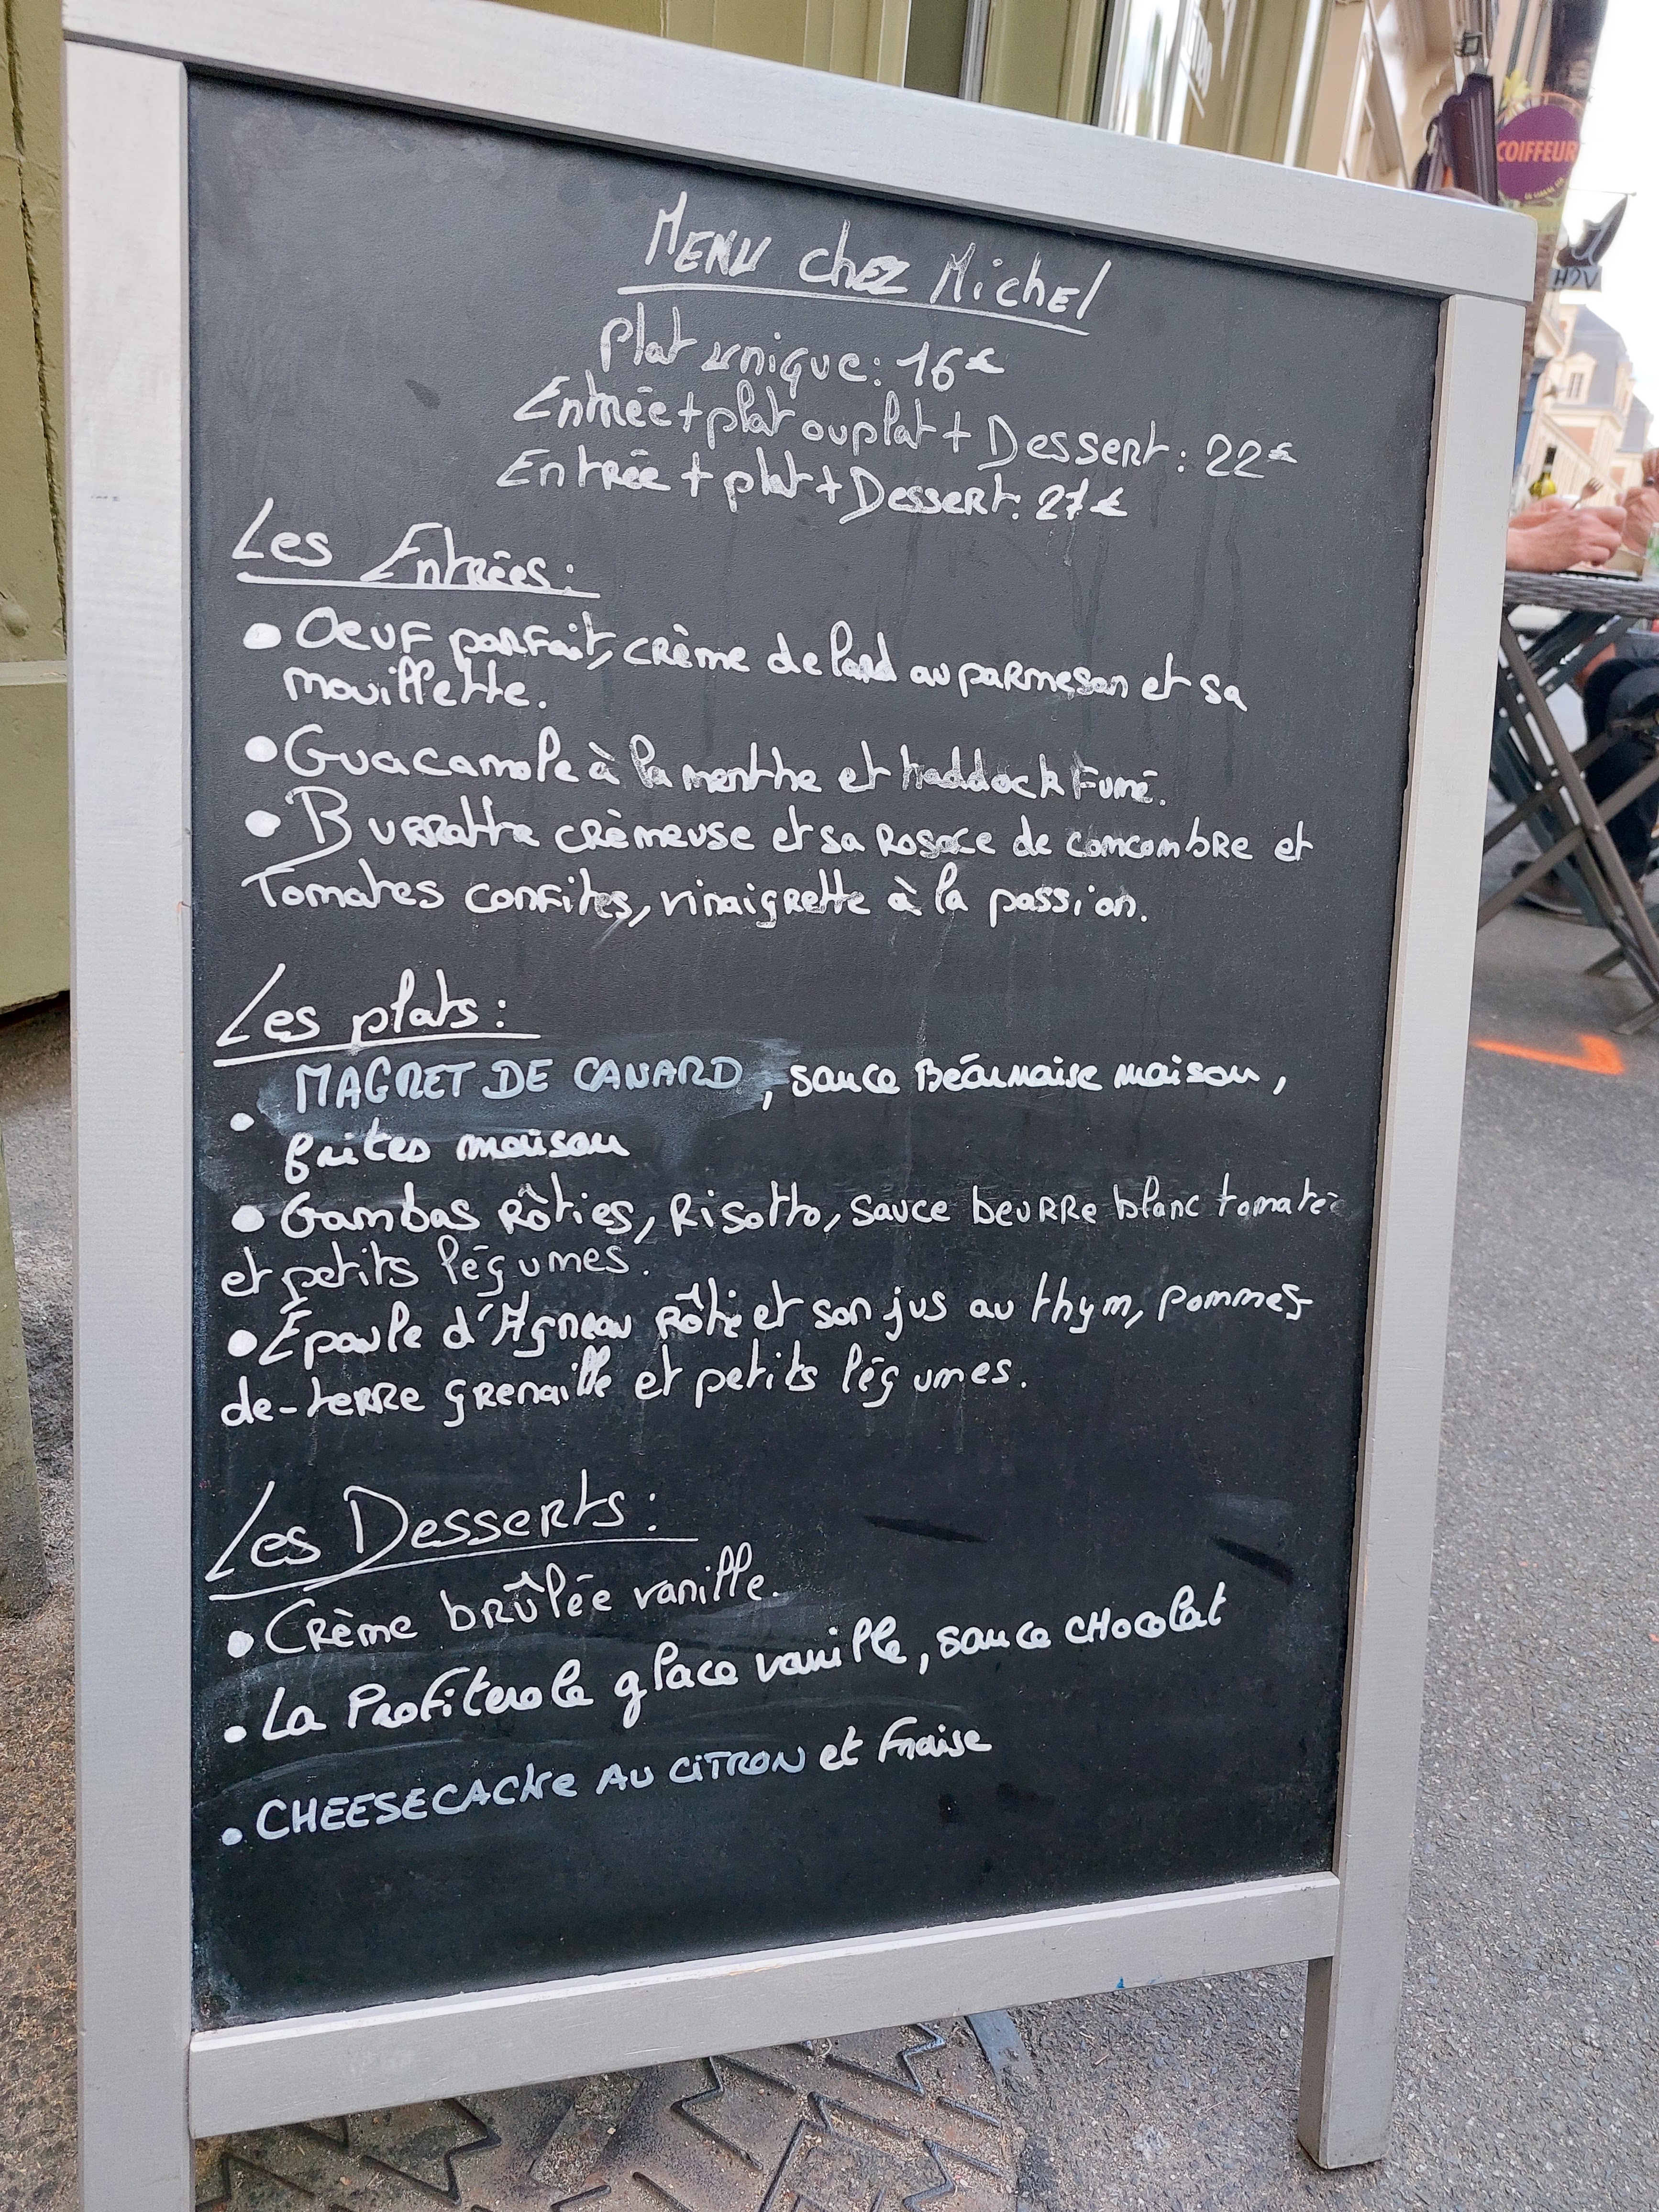 MENU chez Michel
Plat unique: 16€
Entrée+plat ou plat + Dessert: 22€
Entrée + plat + Dessert: 27€
Les Entrées:
• Oeuf parfait, crème de lard au parmesan et sa
mouillette.
• Guacamole à la menthe et haddock Fumé.
• Burratta crèmeuse et sa rosace de concombre et
Tomates confites, vinaigrette à la passion.
Les plats:
• MAGRET DE CANARD, sauce Béarnaise maison,
frites maison
• Gambas rôties, Risotto, sauce beurre blanc tomatée
et petits légumes.
• Epaule d'Agneau rôtie et son jus au thym, pommes-
de-terre grenaille et petits légumes.
Les Desserts:
• Crème brûlée vanille.
• La Profiterole glace vanille, sauce chocolat
• CHEESECACke AU CITRON et fraise
COIFFEUR